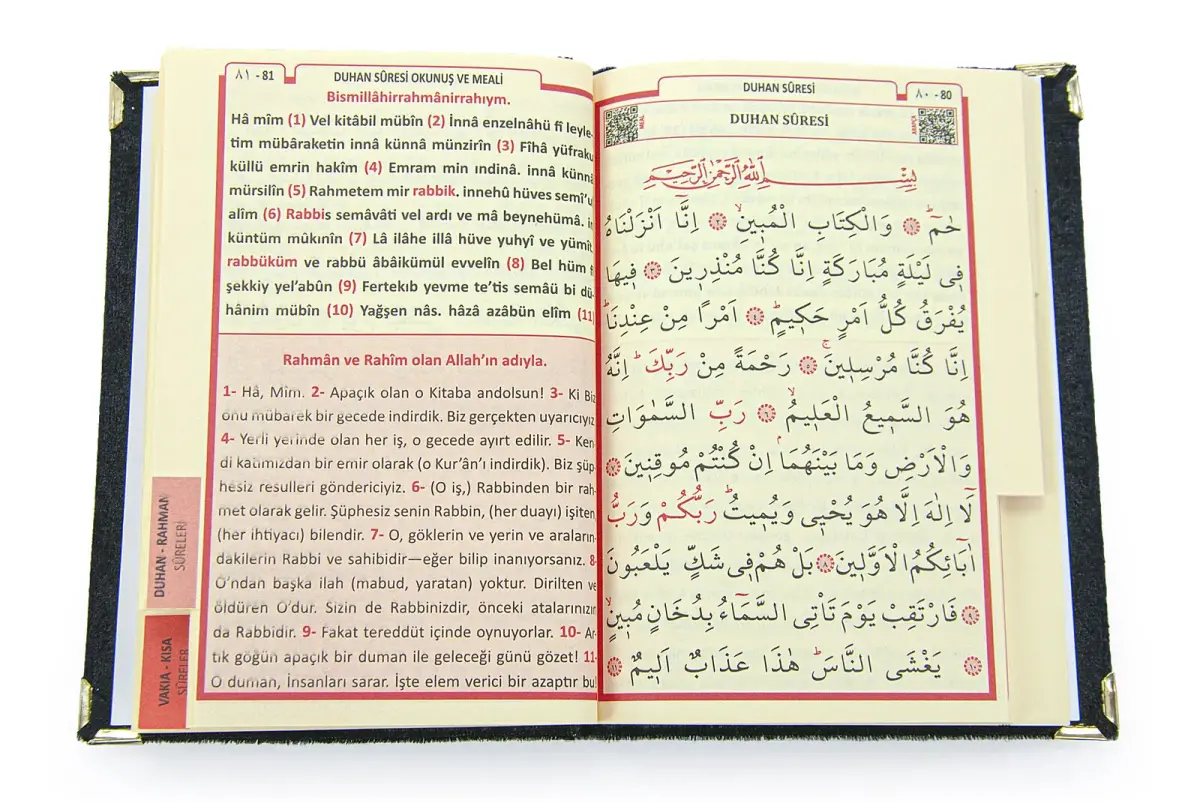 ٨١ - 81
DUHAN SÛRESİ OKUNUŞ VE MEALİ
Bismillâhirrahmânirrahıym.
Hâ mîm (1) Vel kitâbil mübîn (2) İnnâ enzelnâhü fî leyle-
tim mübâraketin innâ künnâ münzirîn (3) Fîhâ yüfraku
küllü emrin hakîm (4) Emram min ındinâ. innâ künnâ
mürsilîn (5) Rahmetem mir rabbik. innehû hüves semî'u
alîm (6) Rabbis semâvâti vel ardı ve mâ beynehümâ. in
küntüm mûkınîn (7) Lâ ilâhe illâ hüve yuhyî ve yümît
rabbüküm ve rabbü âbâikümül evvelîn (8) Bel hüm f
şekkiy yel'abûn (9) Fertekıb yevme te'tis semâü bi dü-
hânim mübîn (10) Yağşen nâs. hâzâ azâbün elîm (11)
Rahmân ve Rahîm olan Allah'ın adıyla.
1- Hâ, Mîm. 2- Apaçık olan o Kitaba andolsun! 3- Ki Biz
onu mübarek bir gecede indirdik. Biz gerçekten uyarıcıyız
4- Yerli yerinde olan her iş, o gecede ayırt edilir. 5- Ken-
di katımızdan bir emir olarak (o Kur'ân'ı indirdik). Biz şüp-
hesiz resulleri göndericiyiz. 6- (O iş,) Rabbinden bir rah-
met olarak gelir. Şüphesiz senin Rabbin, (her duayı) işiten,
(her ihtiyacı) bilendir. 7- O, göklerin ve yerin ve araların-
dakilerin Rabbi ve sahibidir—eğer bilip inanıyorsanız. 8-
O'ndan başka ilah (mabud, yaratan) yoktur. Dirilten ve
öldüren O'dur. Sizin de Rabbinizdir, önceki atalarınızın
da Rabbidir. 9- Fakat tereddüt içinde oynuyorlar. 10- Ar-
tık göğün apaçık bir duman ile geleceği günü gözet! 11-
O duman, İnsanları sarar. İşte elem verici bir azaptır bu!
DUHAN - RAHMAN
SÛRELERİ
VAKIA - KISA
SÛRELER
DUHAN SÛRESİ
٨٠ - 80
MEAL
DUHAN SÛRESİ
ARAPÇA
بِسْمِ اللّٰهِ الرَّحْمٰنِ الرَّحِيمِ
حٰمٓ ﴿١﴾ وَالْكِتَابِ الْمُبٖينِۙ ﴿٢﴾ اِنَّٓا اَنْزَلْنَاهُ
فٖى لَيْلَةٍ مُبَارَكَةٍ اِنَّا كُنَّا مُنْذِرٖينَ ﴿٣﴾ فٖيهَا
يُفْرَقُ كُلُّ اَمْرٍ حَكٖيمٍۙ ﴿٤﴾ اَمْرًا مِنْ عِنْدِنَاۜ
اِنَّا كُنَّا مُرْسِلٖينَۚ ﴿٥﴾ رَحْمَةً مِنْ رَبِّكَۜ اِنَّهُ
هُوَ السَّمٖيعُ الْعَلٖيمُۙ ﴿٦﴾ رَبِّ السَّمٰوَاتِ
وَالْاَرْضِ وَمَا بَيْنَهُمَاۢ اِنْ كُنْتُمْ مُوقِنٖينَ ﴿٧﴾
لَٓا اِلٰهَ اِلَّا هُوَ يُحْيٖى وَيُمٖيتُۜ رَبُّكُمْ وَرَبُّ
اٰبَٓائِكُمُ الْاَوَّلٖينَ ﴿٨﴾ بَلْ هُمْ فٖى شَكٍّ يَلْعَبُونَ
﴿٩﴾ فَارْتَقِبْ يَوْمَ تَأْتِى السَّمَٓاءُ بِدُخَانٍ مُبٖينٍۙ
﴿١٠﴾ يَغْشَى النَّاسَۜ هٰذَا عَذَابٌ اَلٖيمٌ ﴿١١﴾